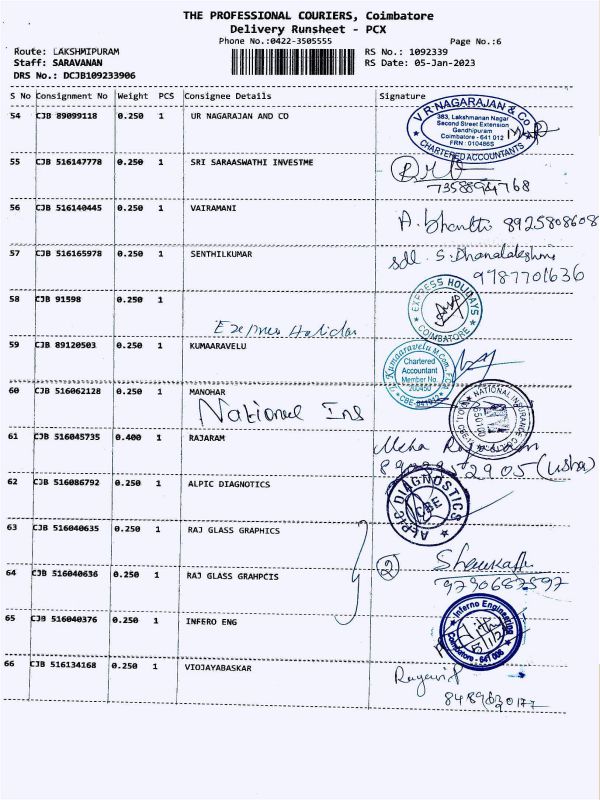 THE PROFESSIONAL COURIERS, Coimbatore
Delivery Runsheet - PCX
Phone No.:0422-3505555 Page No.:6
Route: LAKSHMIPURAM RS No.: 1092339
Staff: SARAVANAN RS Date: 05-Jan-2023
DRS No.: DCJB109233906
S No Consignment No Weight PCS Consignee Details Signature
54 CJB 89099118 0.250 1 UR NAGARAJAN AND CO
V R NAGARAJAN & Co
383, Lakshmanan Nagar
Second Street Extension
Gandhipuram
Coimbatore - 641 012
FRN : 010486S
CHARTERED ACCOUNTANTS
55 CJB 516147778 0.250 1 SRI SARAASWATHI INVESTME
7358894768
56 CJB 516140445 0.250 1 VAIRAMANI
A. bharathi 8925808608
57 CJB 516165978 0.250 1 SENTHILKUMAR
sdl. S. Dhanalakshmi
9787701636
58 CJB 91598 0.250 1
EXPRESS HOLIDAYS
COIMBATORE
59 CJB 89120503 0.250 1 KUMAARAVELU
Kumaaravelu M.Com. FCA
Chartered
Accountant
Member No.
200450
CBE-641012
60 CJB 516062128 0.250 1 MANOHAR
National Ins
NATIONAL INSURANCE
61 CJB 516045735 0.400 1 RAJARAM
(Usha)
62 CJB 516086792 0.250 1 ALPIC DIAGNOSTICS
ALPIC DIAGNOSTICS
CBE
63 CJB 516040635 0.250 1 RAJ GLASS GRAPHICS
64 CJB 516040636 0.250 1 RAJ GLASS GRAHPCIS
2
9790687597
65 CJB 516040376 0.250 1 INFERO ENG
Inferno Engineering
Coimbatore - 641 006
66 CJB 516134168 0.250 1 VIOJAYABASKAR